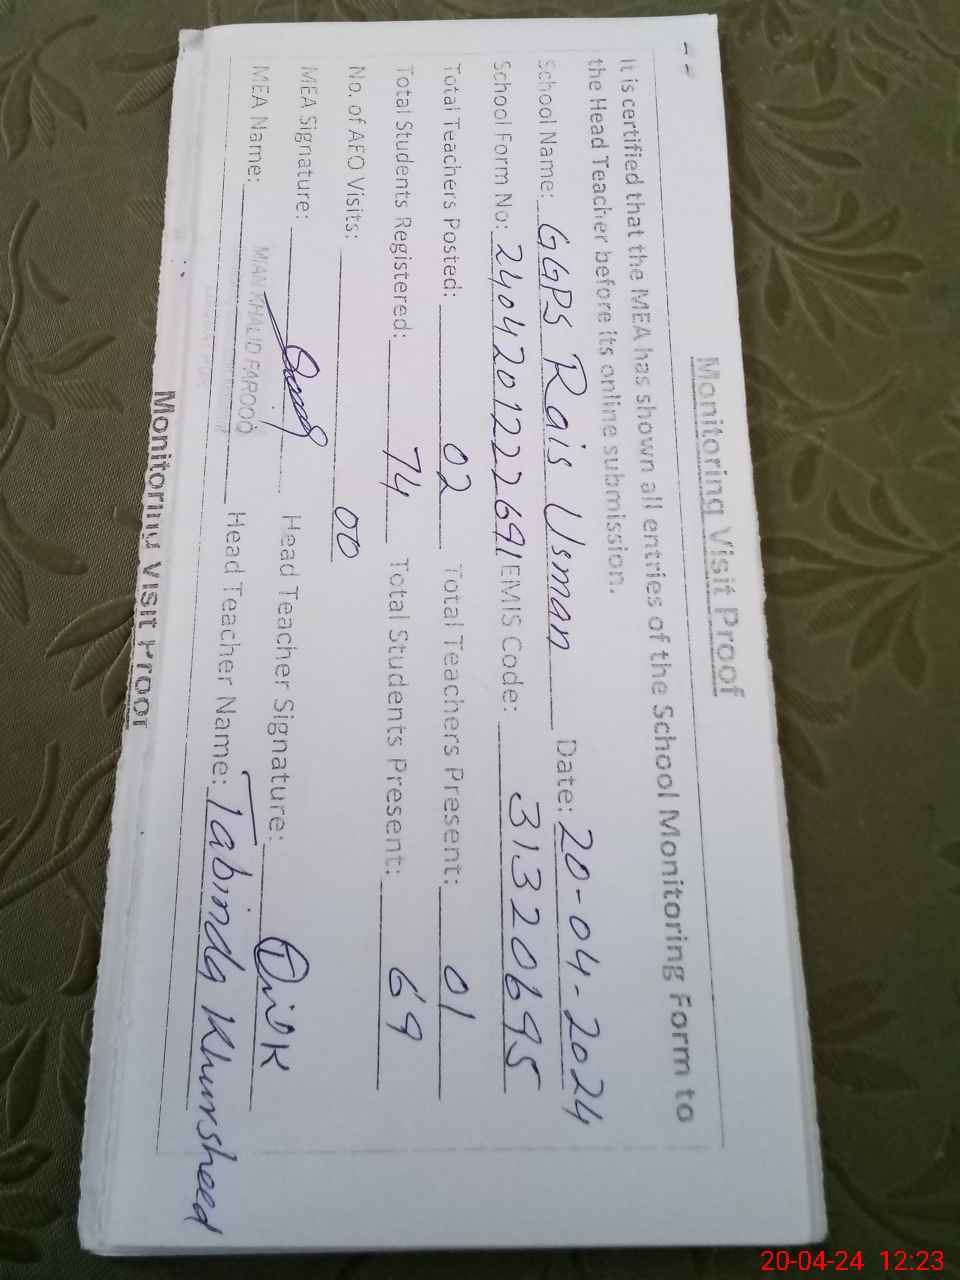 Monitoring Visit Proof
It is certified that the MEA has shown all entries of the School Monitoring Form to
the Head Teacher before its online submission.
School Name: GGPS Rais Usman Date: 20-04-2024
School Form No: 2404201222691 EMIS Code: 31320695
Total Teachers Posted: 02 Total Teachers Present: 01
Total Students Registered: 74 Total Students Present: 69
No. of AEO Visits: 00
MEA Signature: Head Teacher Signature:
MEA Name: MIAN KHALID FAROOQ Head Teacher Name: Tabinda Khursheed
Monitoring Visit Proof
20-04-24 12:23